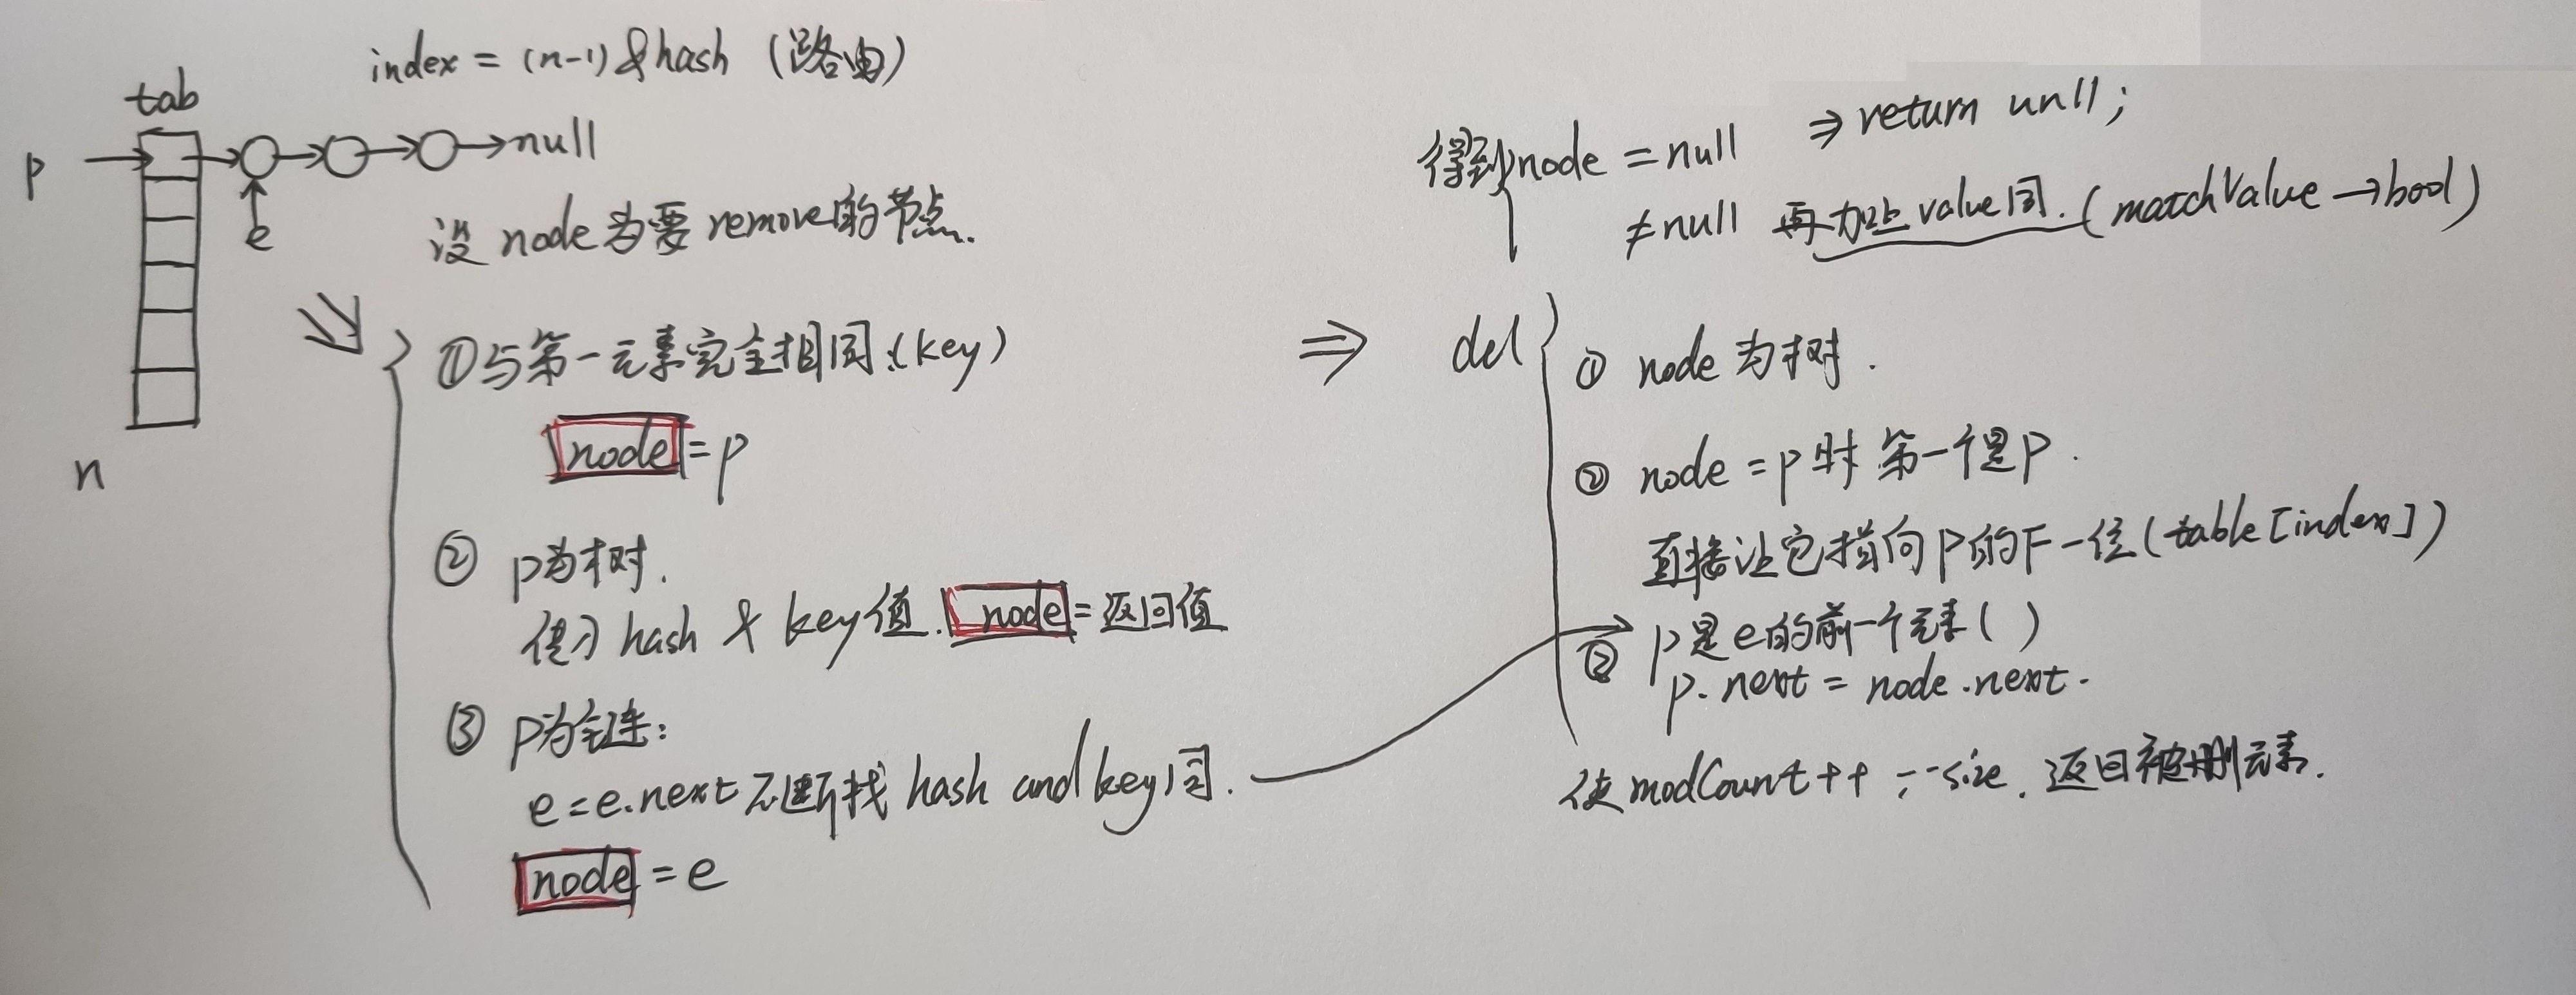 index = (n-1) & hash (路由)
tab
p
null
e
n
设 node 为要 remove 的节点.
①与第一元素完全相同:(key)
node = p
② p为树.
得到 hash & key 值. node = 返回值
③ p为链:
e = e.next 不断找 hash and key 同.
node = e
得到node = null ⇒ return unll;
≠ null 再加上 value同. (matchValue → bool)
⇒ del
① node 为树.
② node = p 时 第一个是 p.
直接让它指向 p 的下一位 (table [index])
② p是 e 的前一个元素 ( )
p. next = node .next.
使 modCount ++ ; --size. 返回被删元素.